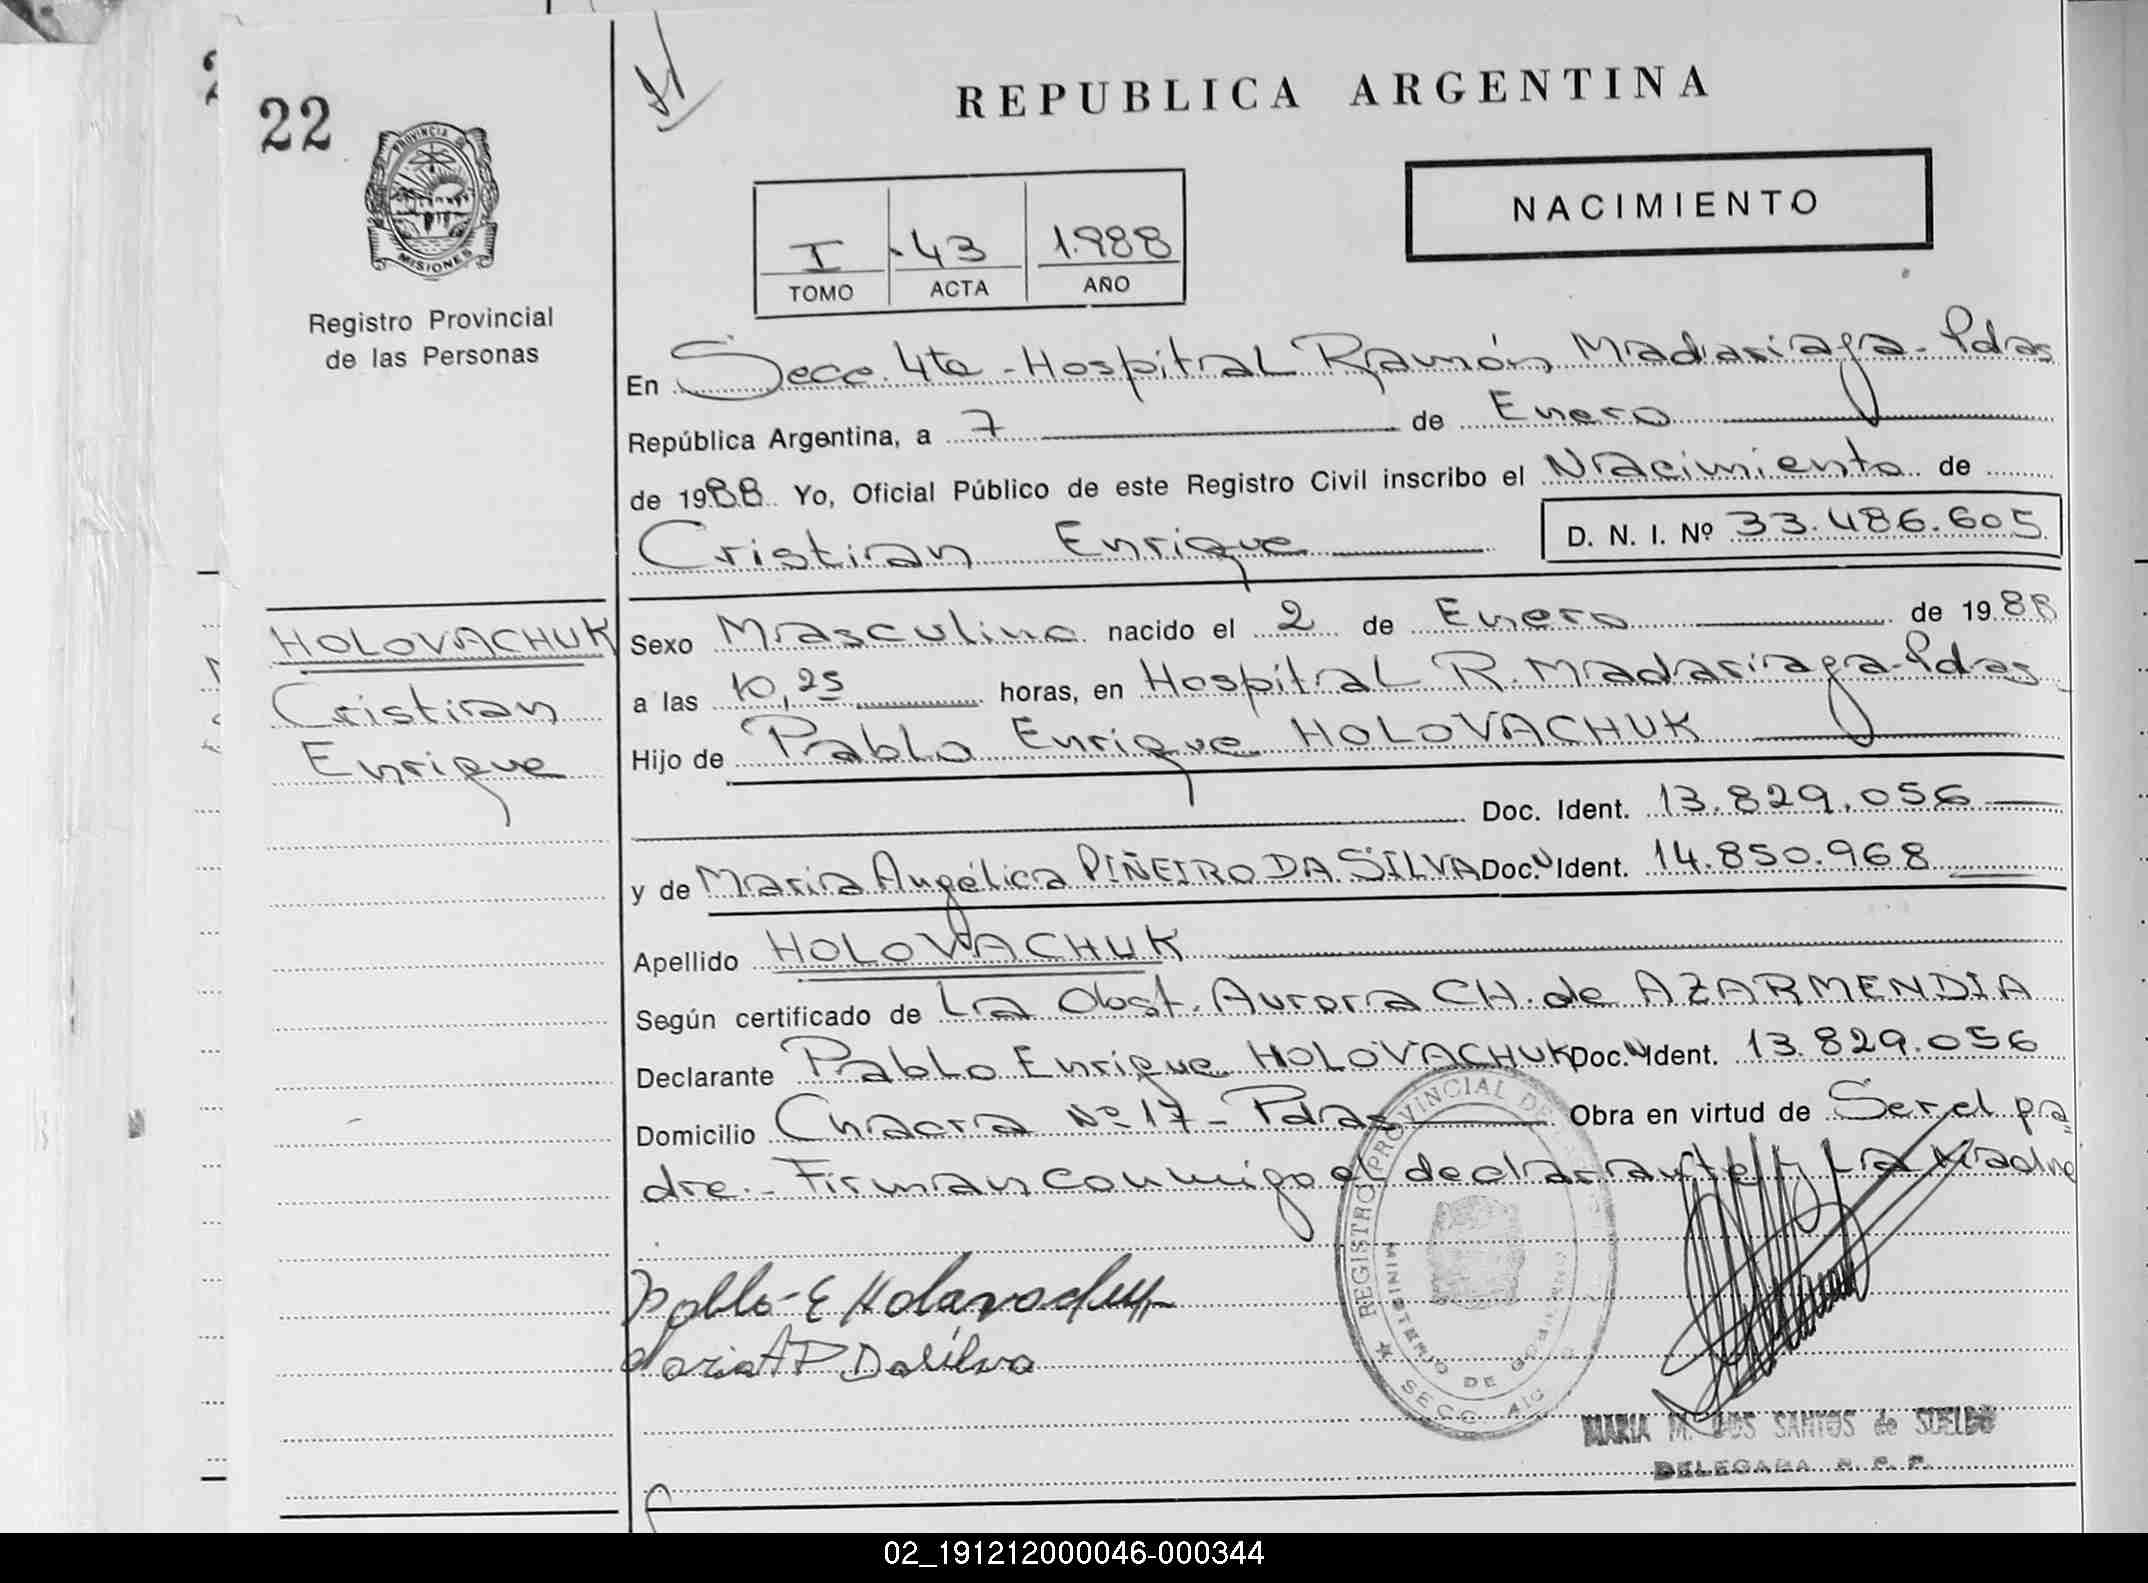 22
REPUBLICA ARGENTINA
PROVINCIA DE
MISIONES
NACIMIENTO
I 43 1.988
TOMO ACTA AÑO
Registro Provincial
de las Personas
En Secc. 4ta - Hospital Ramón Madariaga - Pdas
República Argentina, a 7 de Enero
de 1988 Yo, Oficial Público de este Registro Civil inscribo el Nacimiento de
Cristian Enrique D. N. I. Nº 33.486.605
HOLOVACHUK
Cristian
Enrique
Sexo Masculino nacido el 2 de Enero de 1988
a las 10,25 horas, en Hospital R. Madariaga - Pdas
Hijo de Pablo Enrique HOLOVACHUK
Doc. Ident. 13.829.056
y de Maria Angélica PIÑEIRO DA SILVA Doc. Ident. 14.850.968
Apellido HOLOVACHUK
Según certificado de La Obst. Aurora CH. de AZARMENDIA
Declarante Pablo Enrique HOLOVACHUK Doc. Ident. 13.829.056
Domicilio Chacra Nº 17 - Pdas Obra en virtud de Ser el pa
dre.- Firman conmigo el declarante y La Madre
Pablo - E Holovachuk
Maria A P Da Silva
REGISTRO PROVINCIAL DE
MINISTERIO DE GOBIERNO
SECC.
MARIA M. DOS SANTOS de SUELDO
DELEGADA R. P. P.
02_191212000046-000344